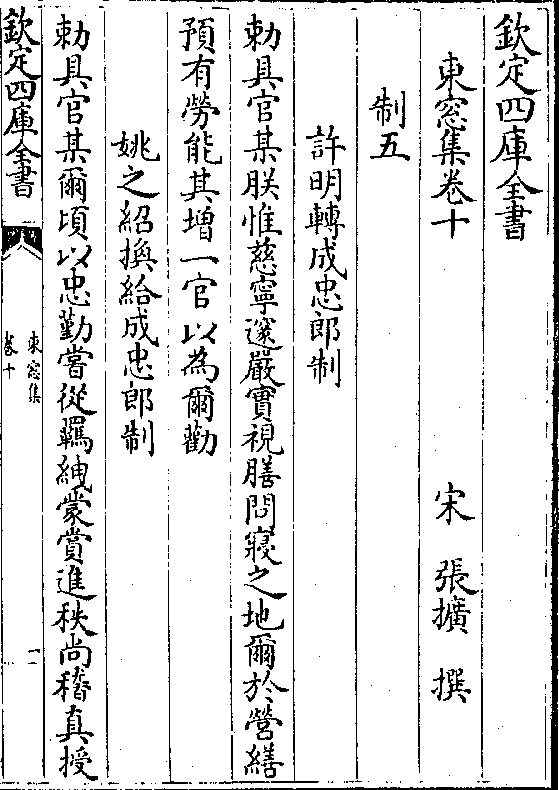 欽定四庫全書
東窓集卷十
宋 張擴 撰
制五
許明轉成忠郎制
勅具官某朕惟慈寧邃嚴實視膳問寢之地爾於營繕
預有勞能其增一官以為爾勸
姚之紹換給成忠郎制
勅具官某爾頃以忠勤嘗從羈紲蒙賞進秩尚稽真授
欽定四庫全書
東窓集
卷十
一